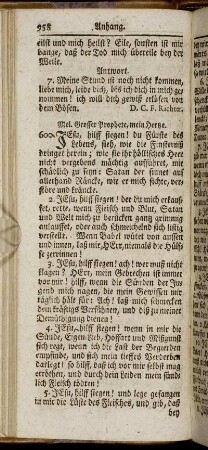 958 Anhang.
eilst und mich heilst? Eile, sonsten ist mir
bange, daß der Tod mich übereil bey der
Weile.
Antwort.
7. Meine Stund ist noch nicht kommen,
liebe mich, leide dich, bis ich dich in mich ge-
nommen! ich will dich gewiß erlösen von
dem Bösen. D. C. F. Richter.
Mel. Grosser Prophete, mein Hertze.
600. JEsu, hilf siegen! du Fürste des
Lebens, sieh, wie die Finsterniß
dringet herein; wie sie ihr höllisches Heer
nicht vergebens mächtig aufführet, mir
schädlich zu seyn: Satan der sinnet auf
allerhand Räncke, wie er mich sichte, ver-
störe und kräncke.
2. JEsu, hilf siegen! der du mich erkauf-
fet, rette, wenn Fleisch und Blut, Satan
und Welt mich zu berücken gantz grimmig
anlauffet, oder auch schmeichelnd sich listig
verstellt. Wenn Babel wütet von aussen und
innen, laß mir, HErr, niemals die Hülf-
fe zerrinnen!
3. JEsu, hilf siegen! ach! wer muß nicht
klagen? HErr, mein Gebrechen ist immer
vor mir! hilf, wenn die Sünden der Ju-
gend mich nagen, die mein Gewissen mir
täglich hält für: Ach! laß mich schmecken
dein kräftigs Versühnen, und diß zu meiner
Demüthigung dienen!
4. JEsu, hilff siegen! wenn in mir die
Sünde, Eigen-Lieb, Hoffart und Mißgunst
sich regt, wenn ich die Last der Begierden
empfinde, und sich mein tieffes Verderben
darlegt! so hilff, daß ich vor mir selbst mag
erröthen, und durch dein Leiden mein sünd-
lich Fleisch tödten!
5. JEsu, hilff siegen! und lege gefangen
in mir die Lüste des Fleisches, und gib, daß
bey